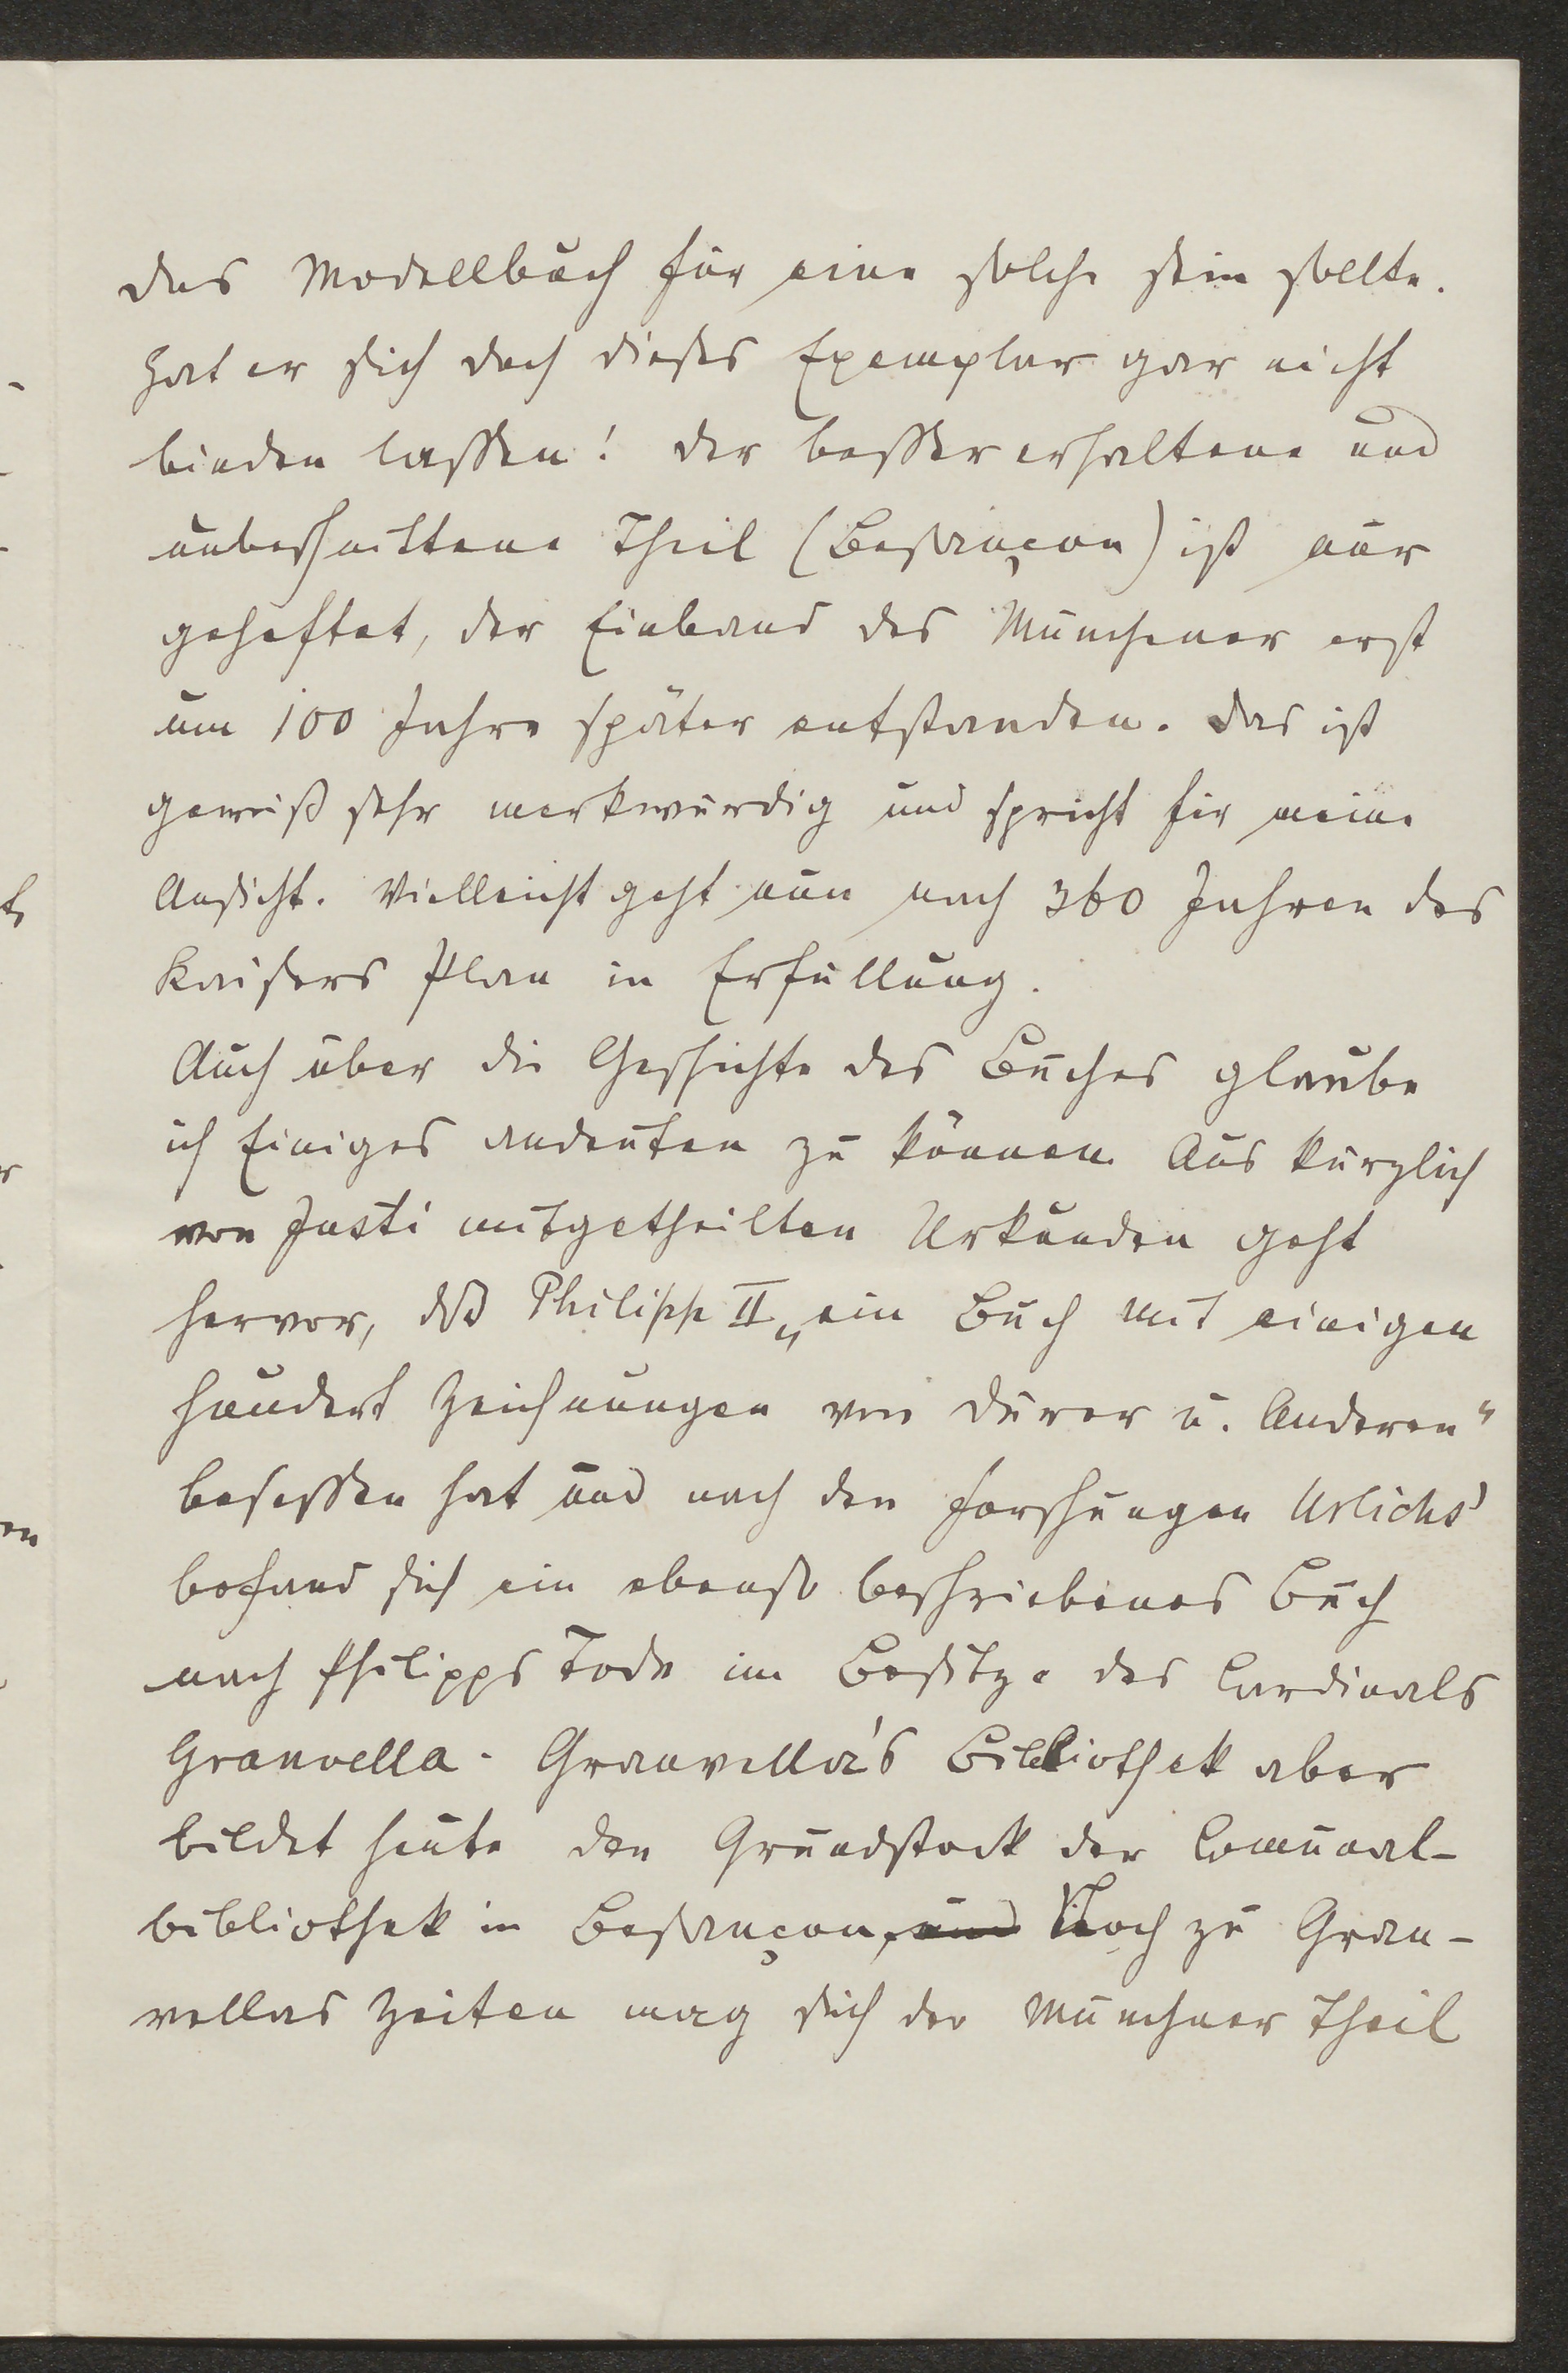 das Modellbuch für eine solche sein sollte.
Hat er sich doch dieses Exemplar gar nicht
binden lassen! Der besser erhaltene und
unbeschnittene Theil (Besançon) ist nur
geheftet, der Einband des Münchener erst
um 100 Jahre später entstanden. Das ist
gewiß sehr merkwürdig und spricht für meine
Ansicht. Vielleicht geht nun nach 360 Jahren des
Kaisers Plan in Erfüllung.
Auch über die Geschichte des Buches glaube
ich Einiges andeuten zu können. Aus kürzlich
von Justi mitgetheilten Urkunden geht
hervor, daß Philipp II „ein Buch mit einigen
hundert Zeichnungen von Dürer u. Anderen“
besessen hat und nach den Forschungen Urlichs'
befand sich ein ebenso beschriebenes Buch
nach Philipps Tode im Besitze des Cardinals
Granvella. Granvella's Bibliothek aber
bildet heute den Grundstock der Comunal-
bibliothek in Besançon, und Noch zu Gran-
vellas Zeiten mag sich der Münchner Theil